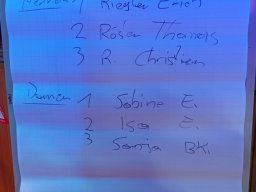 Herren 1 Riegler Erich
2 Rösler Thomas
3 R. Christian
Damen 1 Sabine E.
2 Isa E.
3 Sonja BK.